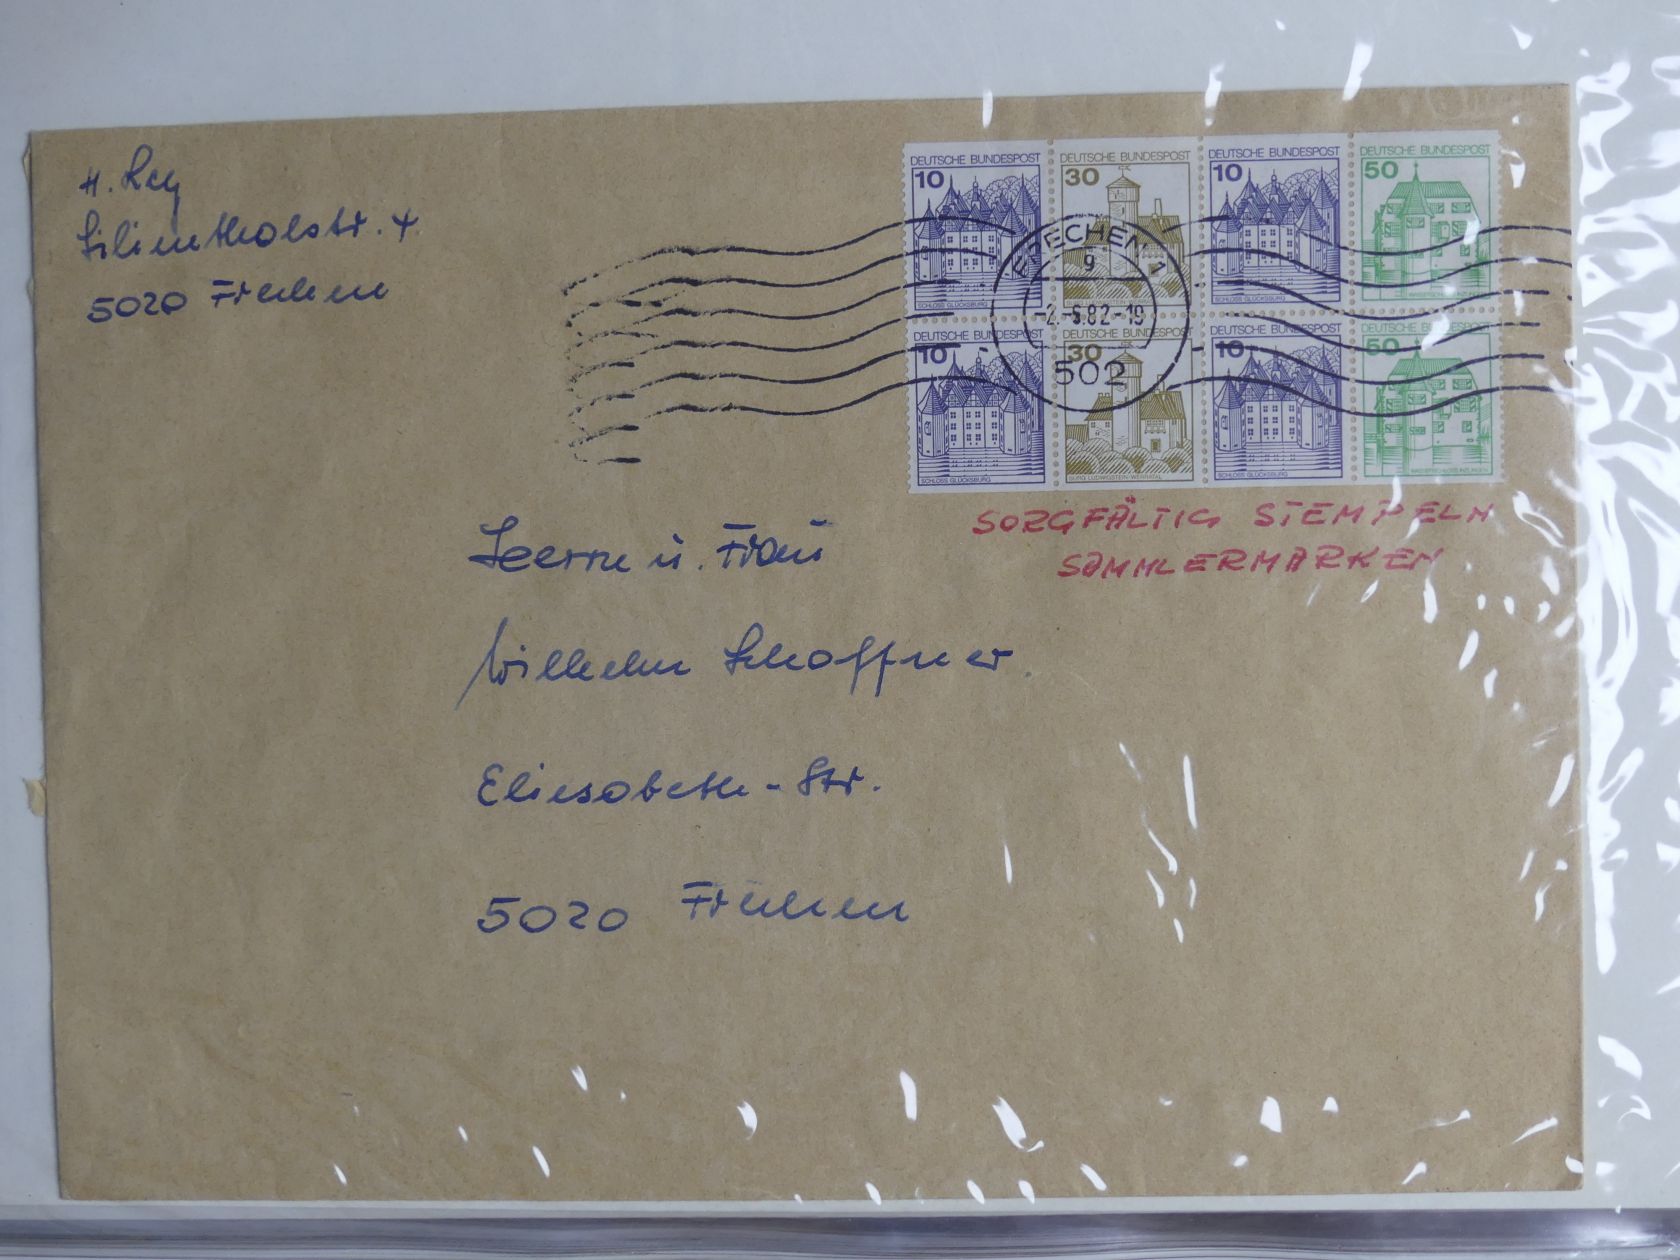 H. Rey
Lilienthalstr. 4
5020 Frechen
DEUTSCHE BUNDESPOST DEUTSCHE BUNDESPOST DEUTSCHE BUNDESPOST DEUTSCHE BUNDESPOST
10 30 10 50
FRECHEN 1
g
-2.-5.82-19
502
SCHLOSS GLÜCKSBURG SCHLOSS GLÜCKSBURG
DEUTSCHE BUNDESPOST DEUTSCHE BUNDESPOST DEUTSCHE BUNDESPOST DEUTSCHE BUNDESPOST
10 30 10 50
SCHLOSS GLÜCKSBURG BURG LUDWIGSTEIN-WERRATAL SCHLOSS GLÜCKSBURG WASSERSCHLOSS INZLINGEN
SORGFÄLTIG STEMPELN
SAMMLERMARKEN
Herrn u. Frau
Wilhelm Schaffner
Eliesabeth-Str.
5020 Frechen